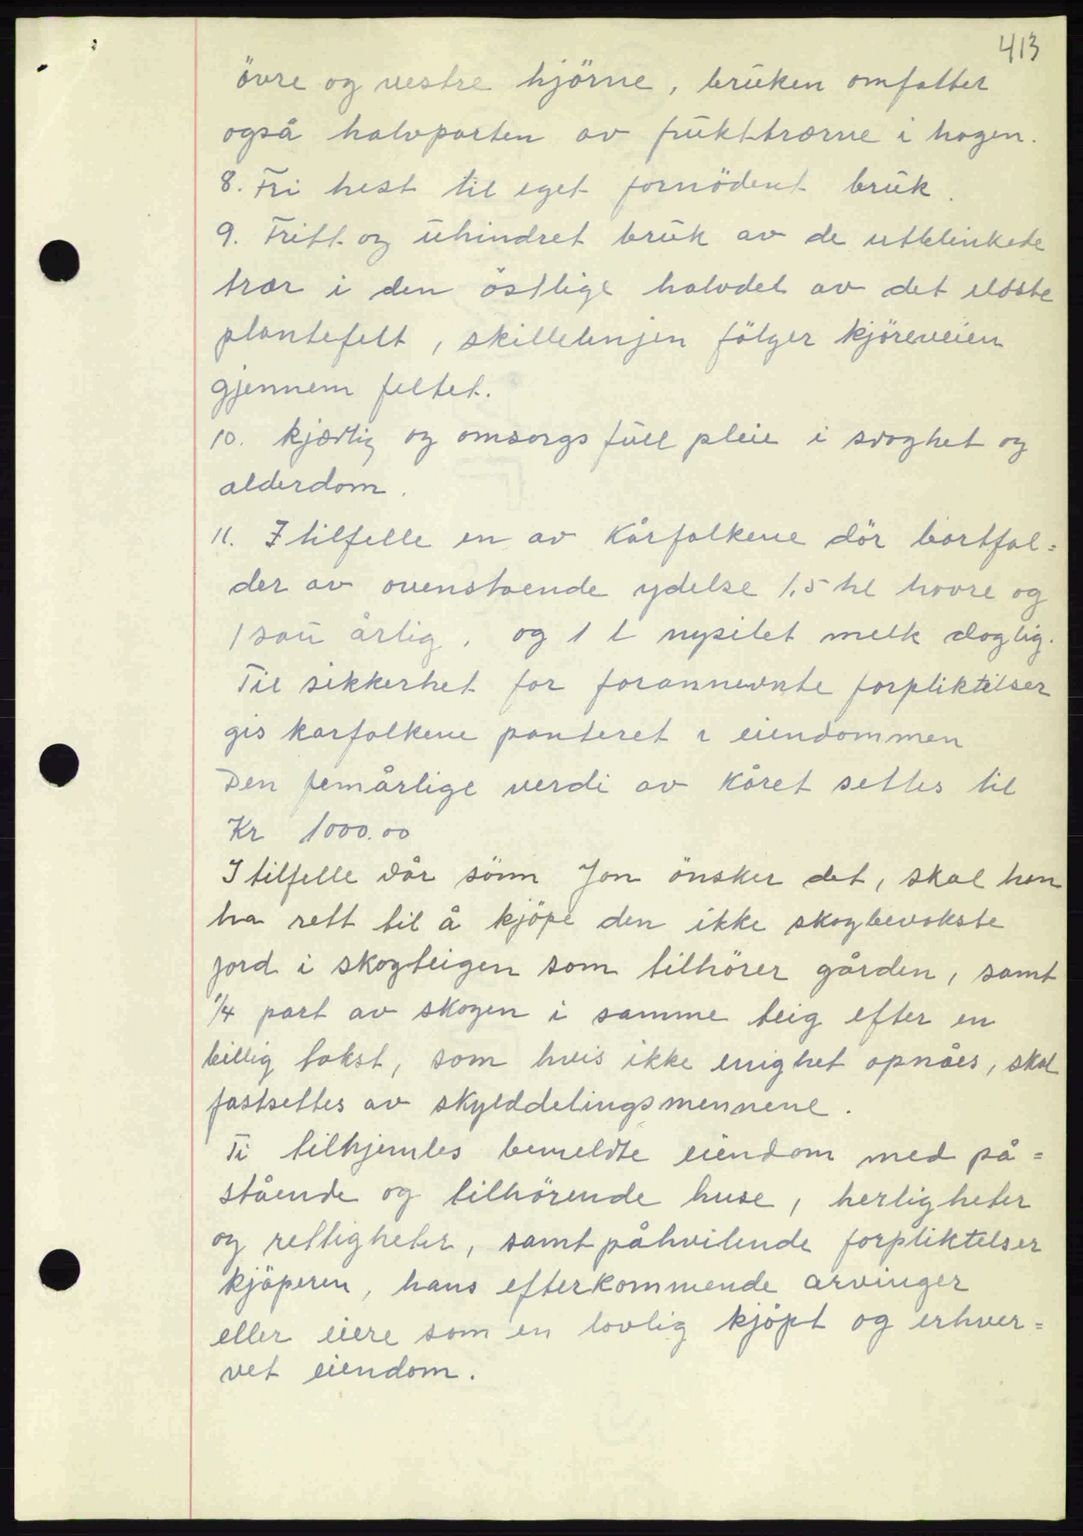 413
övre og vestre hjörne, brūken omfatter
også halvparten av frūkttrærne i hagen.
8. Fri hest til eget fornödent brūk.
9. Fritt og ūhindret brūk av de utblinkede
trær i den östlige halvdel av det eldste
plantefelt, skillelinjen fölger kjöreveien
gjennem feltet.
10. kjærlig og omsorgsfūll pleie i svaghet og
alderdom.
11. I tilfelle en av kårfolkene dör bortfal=
der av ovenstaende ydelse 1,5 hl havre og
1 saū årlig, og 1 l nysilet melk daglig.
Til sikkerhet for forannevnte forpliktelser
gis karfolkene panteret i eiendommen
Den femårlige verdi av kåret settes til
Kr 1000.00
I tilfelle vår sönn Jon önsker det, skal han
ha rett til å kjöpe den ikke skogbevokste
jord i skogteigen som tilhörer gården, samt
1/4 part av skogen i samme teig efter en
billig takst, som hvis ikke enighet opnåes, skal
fastsettes av skylddelingsmennene.
Ti tilhjemles bemeldte eiendom med på=
stående og tilhörende huse, herligheter
og rettigheter, samt påhvilende forpliktelser
kjöperen, hans efterkommende arvinger
eller eiere som en lovlig kjöpt og erhver=
vet eiendom.